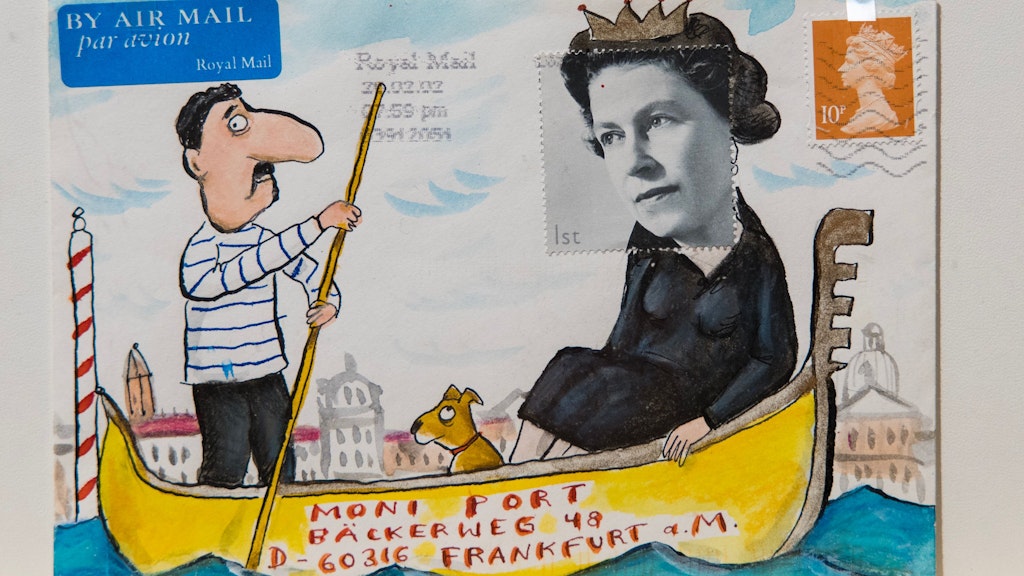 BY AIR MAIL
par avion
Royal Mail
Royal Mail
07:59 pm
10P
1st
MONI PORT
BÄCKERWEG 48
D-60316 FRANKFURT a.M.